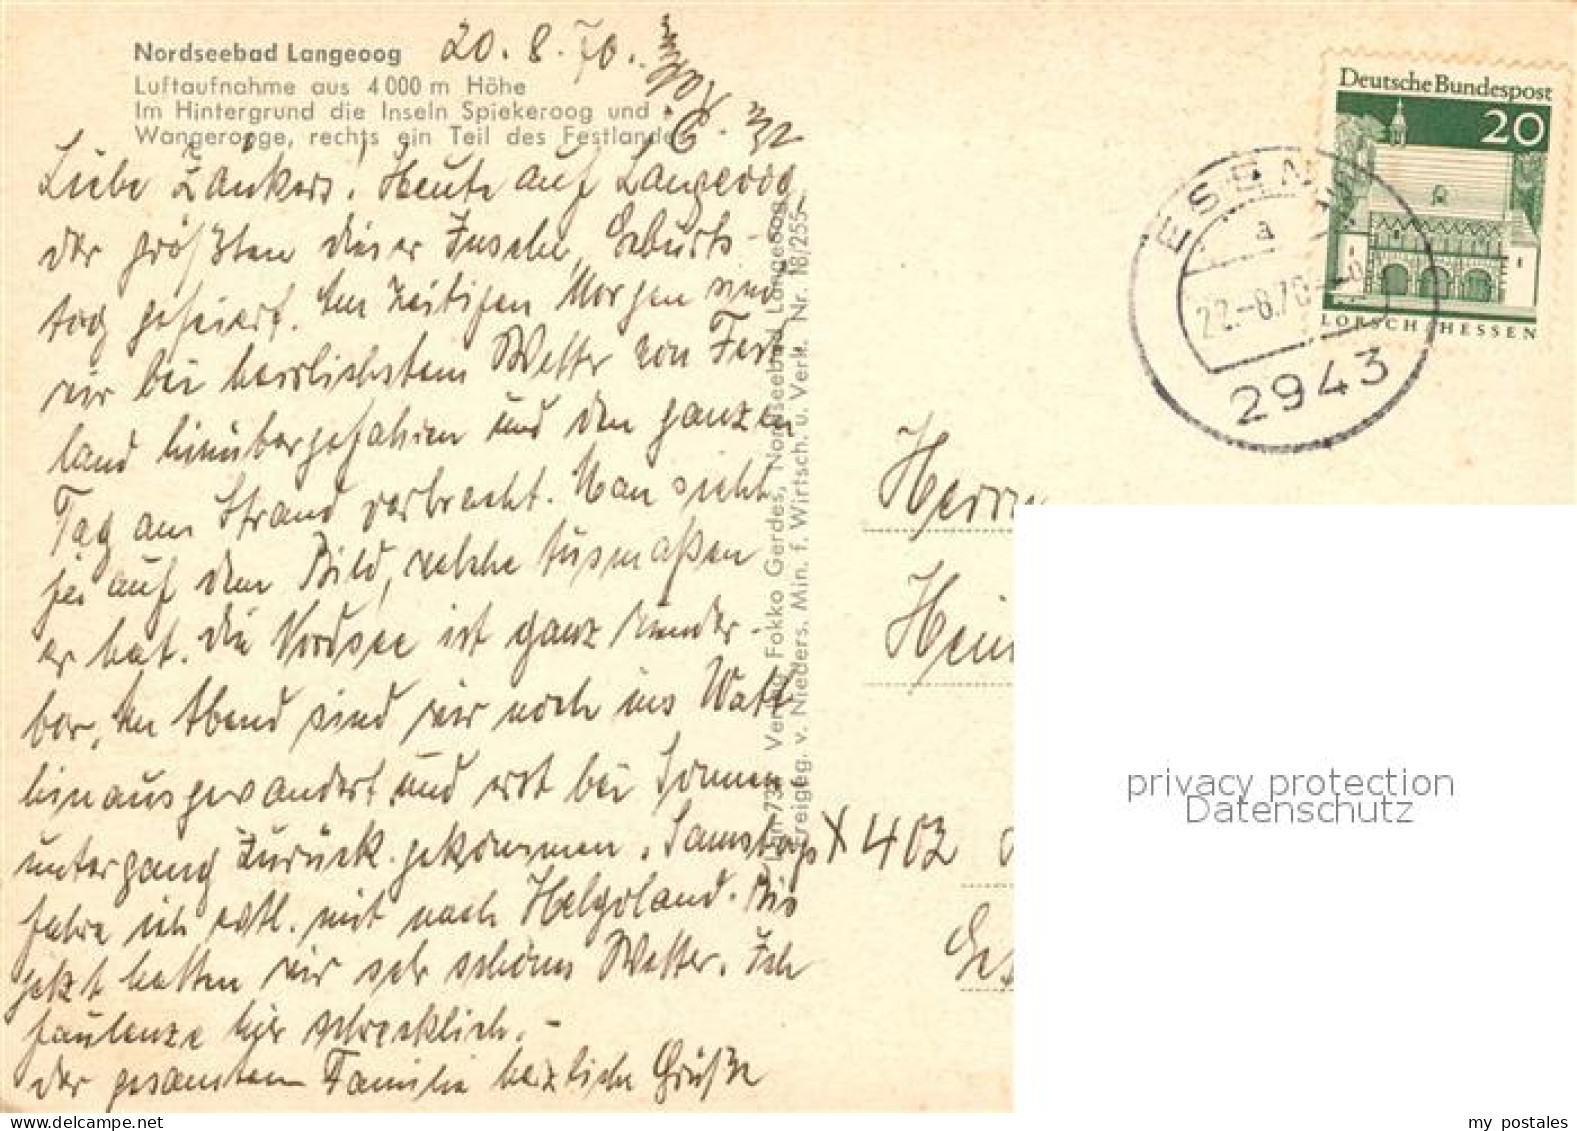 Nordseebad Langeoog 20. 8. 70.
Luftaufnahme aus 4000 m Höhe
Im Hintergrund die Inseln Spiekeroog und
Wangerooge, rechts ein Teil des Festlandes
Liebe Heute auf Langeoog,
der größten dieser Inseln, Geburts-
tag gefeiert. Am zeitigen Morgen sind
wir bei herrlichstem Wetter von Fest-
land hinübergefahren und den ganzen
Tag am Strand verbracht. Man sieht
ja auf dem Bild, welche Ausmaßen
er hat. Die Nordsee ist ganz wunder-
bar. Am Abend sind wir noch ins Watt
hinausgewandert und erst bei Sonnen-
untergang zurück gekommen. Samstag
fahre ich evtl. mit nach Helgoland. Bis
jetzt hatten wir sehr schönes Wetter. Ich
faulenze hier schrecklich. -
Der gesamten Familie herzliche Grüße
Verlag Fokko Gerdes, Nordseebad Langeoog
Freigleg. v. Nieders. Min. f. Wirtsch. u. Verk. Nr. 18/255
Deutsche Bundespost
20
LORSCH/HESSEN
ESENS
a
22.-8.70
2943
Herrn
X 402
privacy protection
Datenschutz
my postales